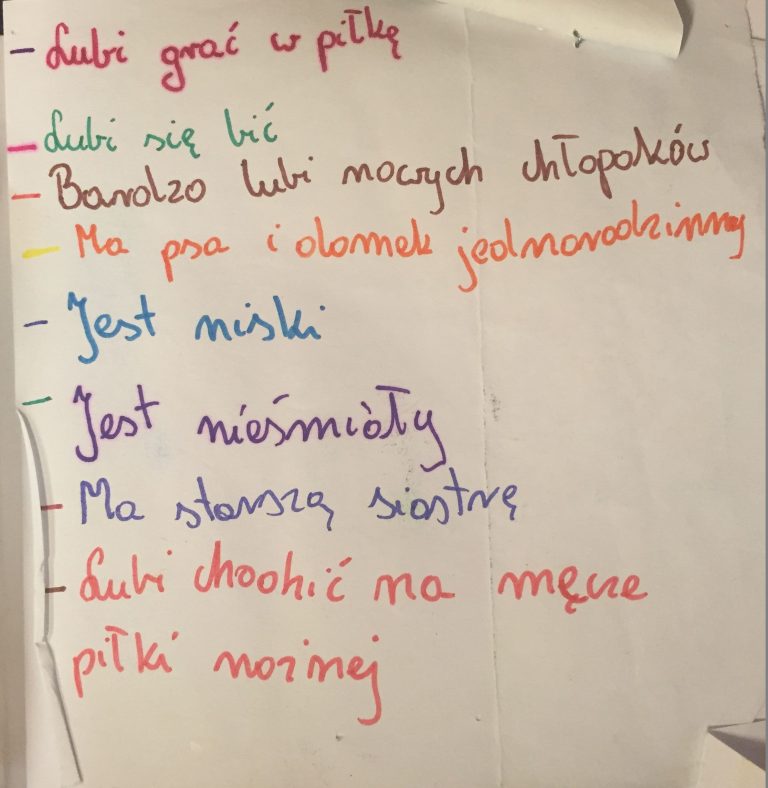 - Lubi grać w piłkę
- Lubi się bić
- Bardzo lubi nocnych chłopaków
- Ma psa i domek jednorodzinny
- Jest niski
- Jest nieśmiały
- Ma starszą siostrę
- Lubi chodzić na męcze
piłki nożnej